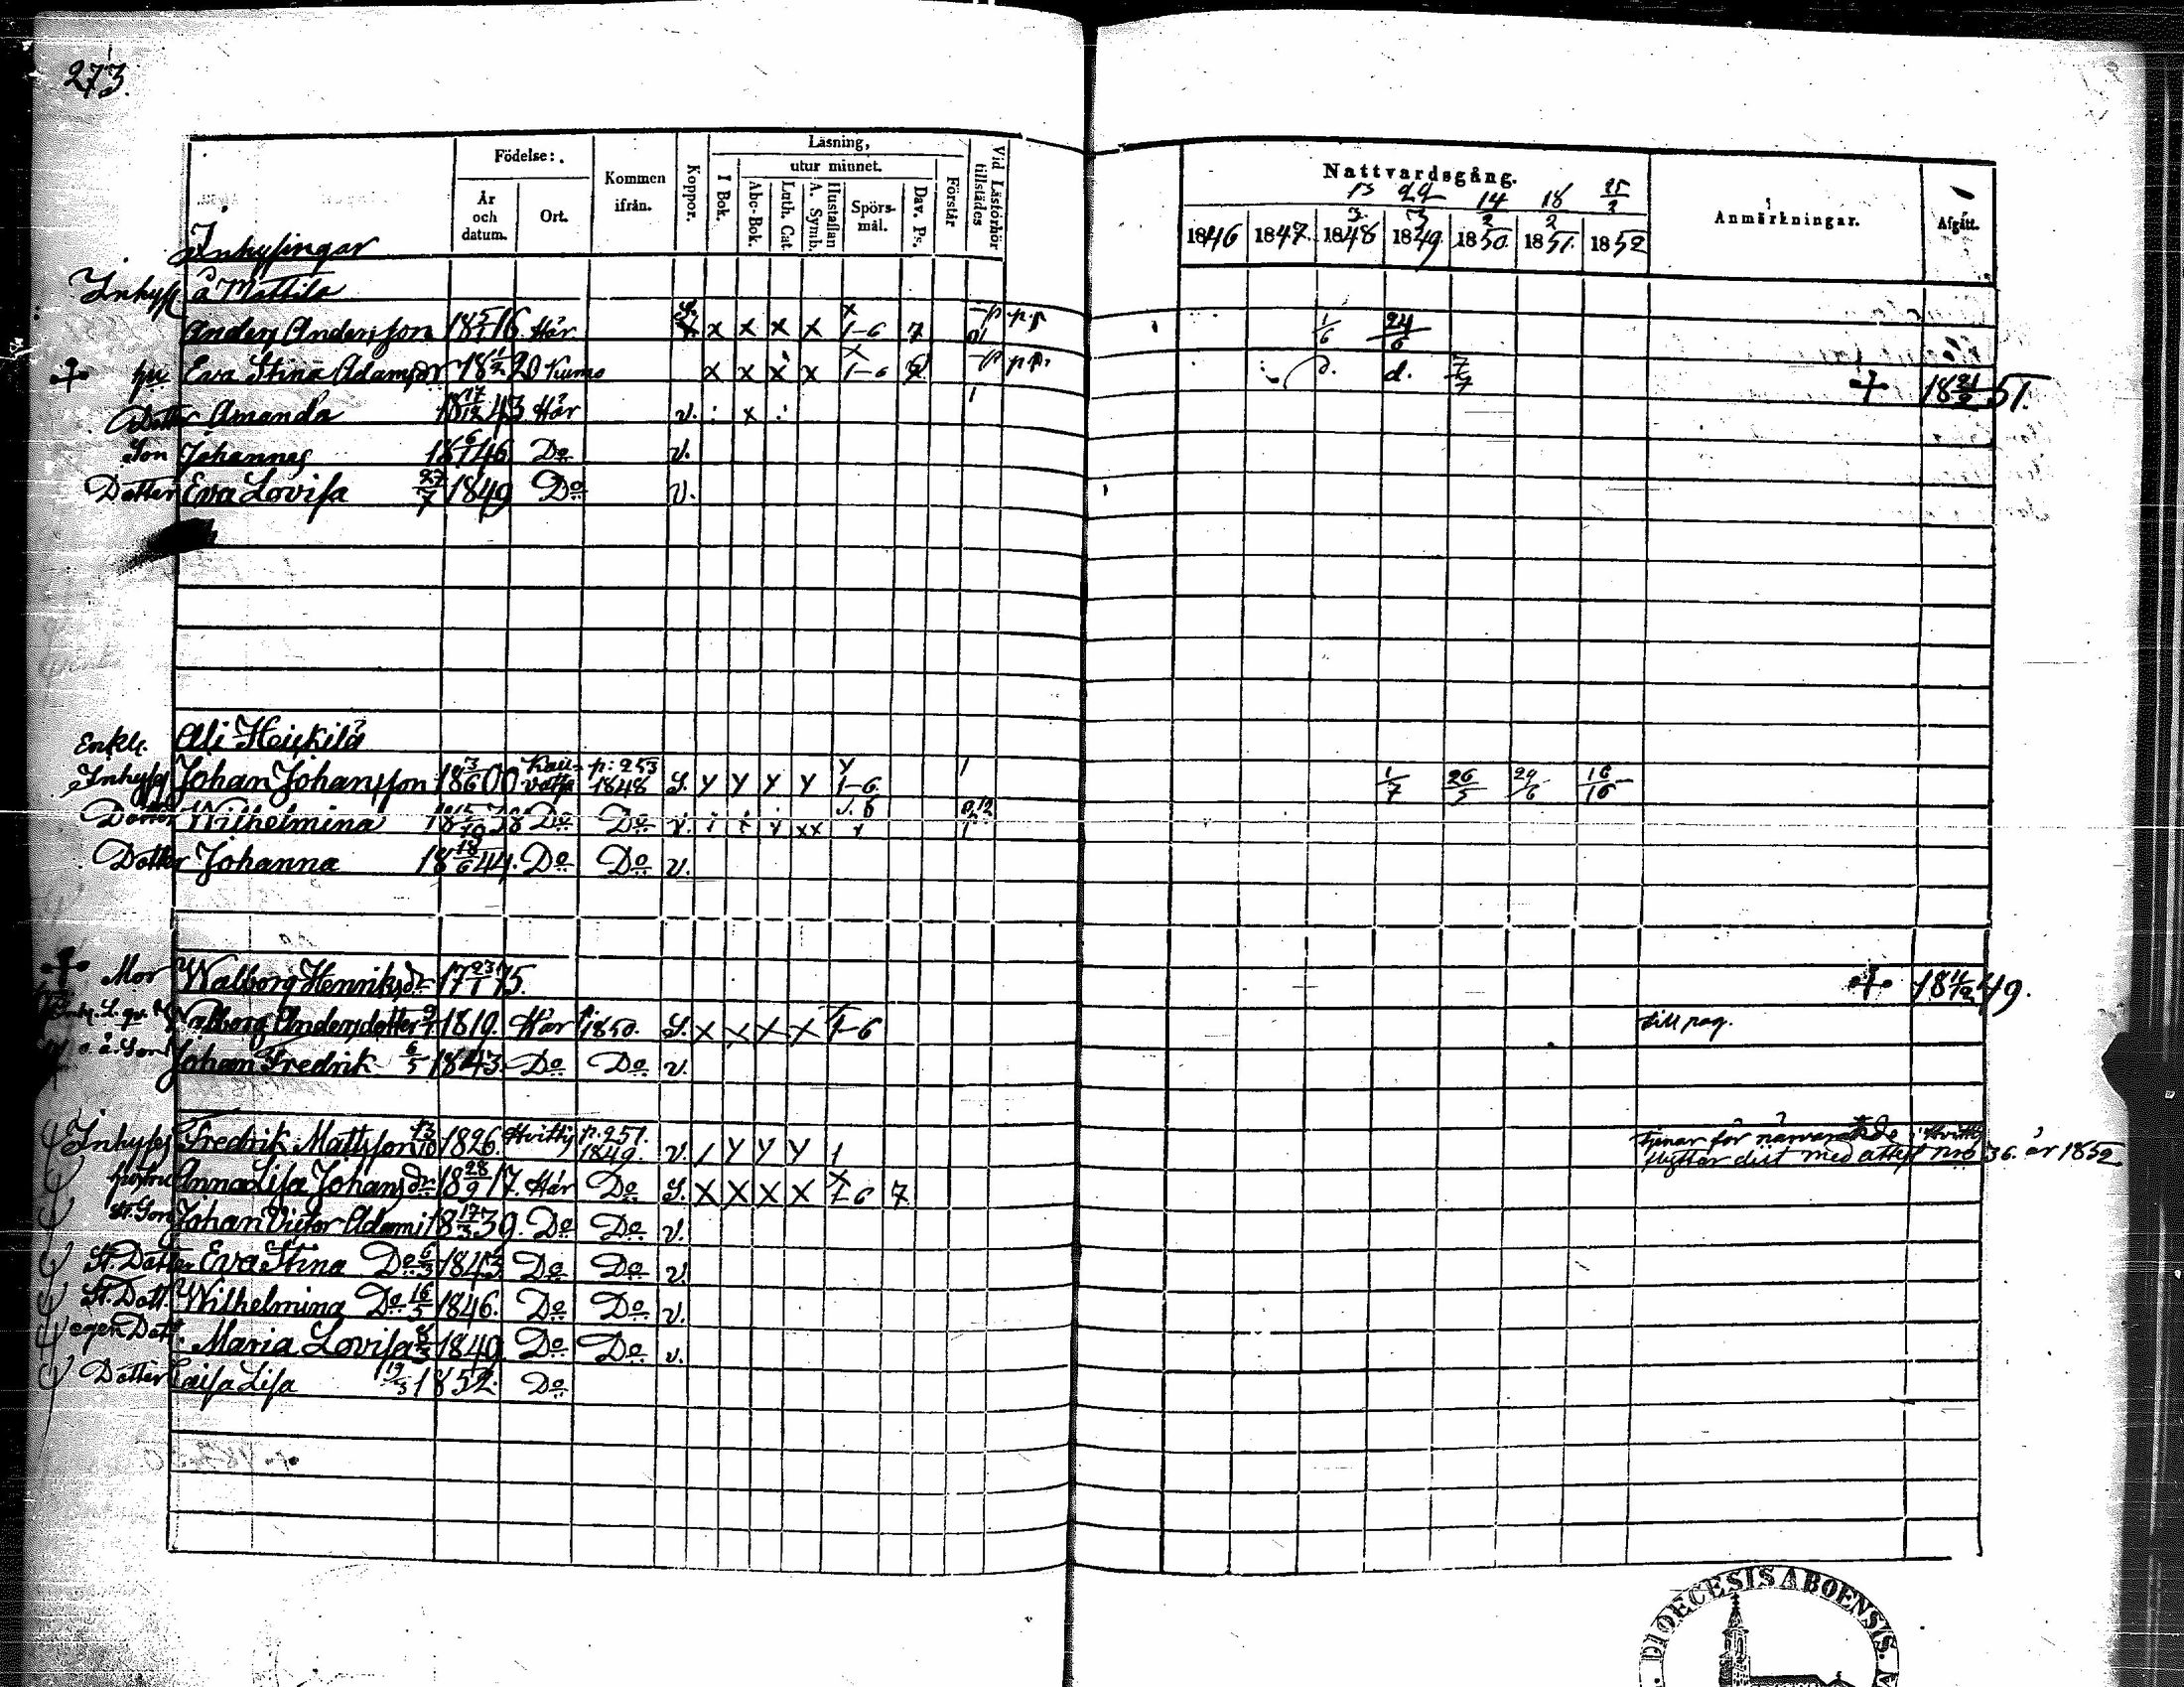 273.
Födelse: Kommen ifrån. Koppor. Läsning, Vid Läsförhör tillstädes
utur minnet.
År och datum. Ort. I Bok. Abc-Bok. Luth. Cat. A. Symb. Hustaflan Spörs-mål. Dav. Ps. Förstår
Nattvardsgång. Anmärkningar. Afgått.
13/3 22/3 14/2 18/2 25/2
1846 1847. 1848 1849. 1850. 1851. 1852
Inhysingar
å Mattila
Inhys Anders Andersson 18 5/1 16 Här x x x x x 1-6 7 1/6 24/6
+ hu Eva Stina Adamsdr 18 1/2 20 Kumo x x x x 1-6 d. d. 7/7 + 18 21/2 51.
Dotter Amanda 18 17/12 43 Här v. x
Son Johannes 18 6/1 46 Do v.
Dotter Eva Lovisa 27/7 1849 Do v.
Enkl. Ali Heickilä
Inhyses Johan Johansson 18 3/6 00 Kau-vatsa p: 253 1848 S. y y y y 1-6. 1 1/7 26/5 29/6 16/10
Dotter Wilhelmina 18 15/10 28 Do Do v.
Dotter Johanna 18 18/6 44. Do Do v.
+ Mor Walborg Henriksdr 17 23/1 75. + 18 11/12 49.
Walborg Andersdotter 1819. Här 1850. S. x x x x 1-6 till pag.
o. ä. Son Johan Fredrik 6/5 1843. Do Do v.
Inhyses Fredrik Mattsson 13/10 1826. Hvittis p. 257. 1849. v. / y y y 1 tjenar för närvarande i Hvittis
flyttar dit med attest nro 36. år 1852
hustru Anna Lisa Johansdr 18 28/9 17. Här Do S. x x x x 1-6 7.
st. Son Johan Victor Adami 18 17/3 39. Do Do v.
St. Dotter Eva Stina Do 6/3 1843 Do Do v.
St. Dott. Wilhelmina Do 16/5 1846. Do Do v.
egen Dott. Maria Lovisa 8/3 1849. Do Do v.
Dotter Caisa Lisa 19/3 1852. Do
DIOECESIS ABOENSIS.